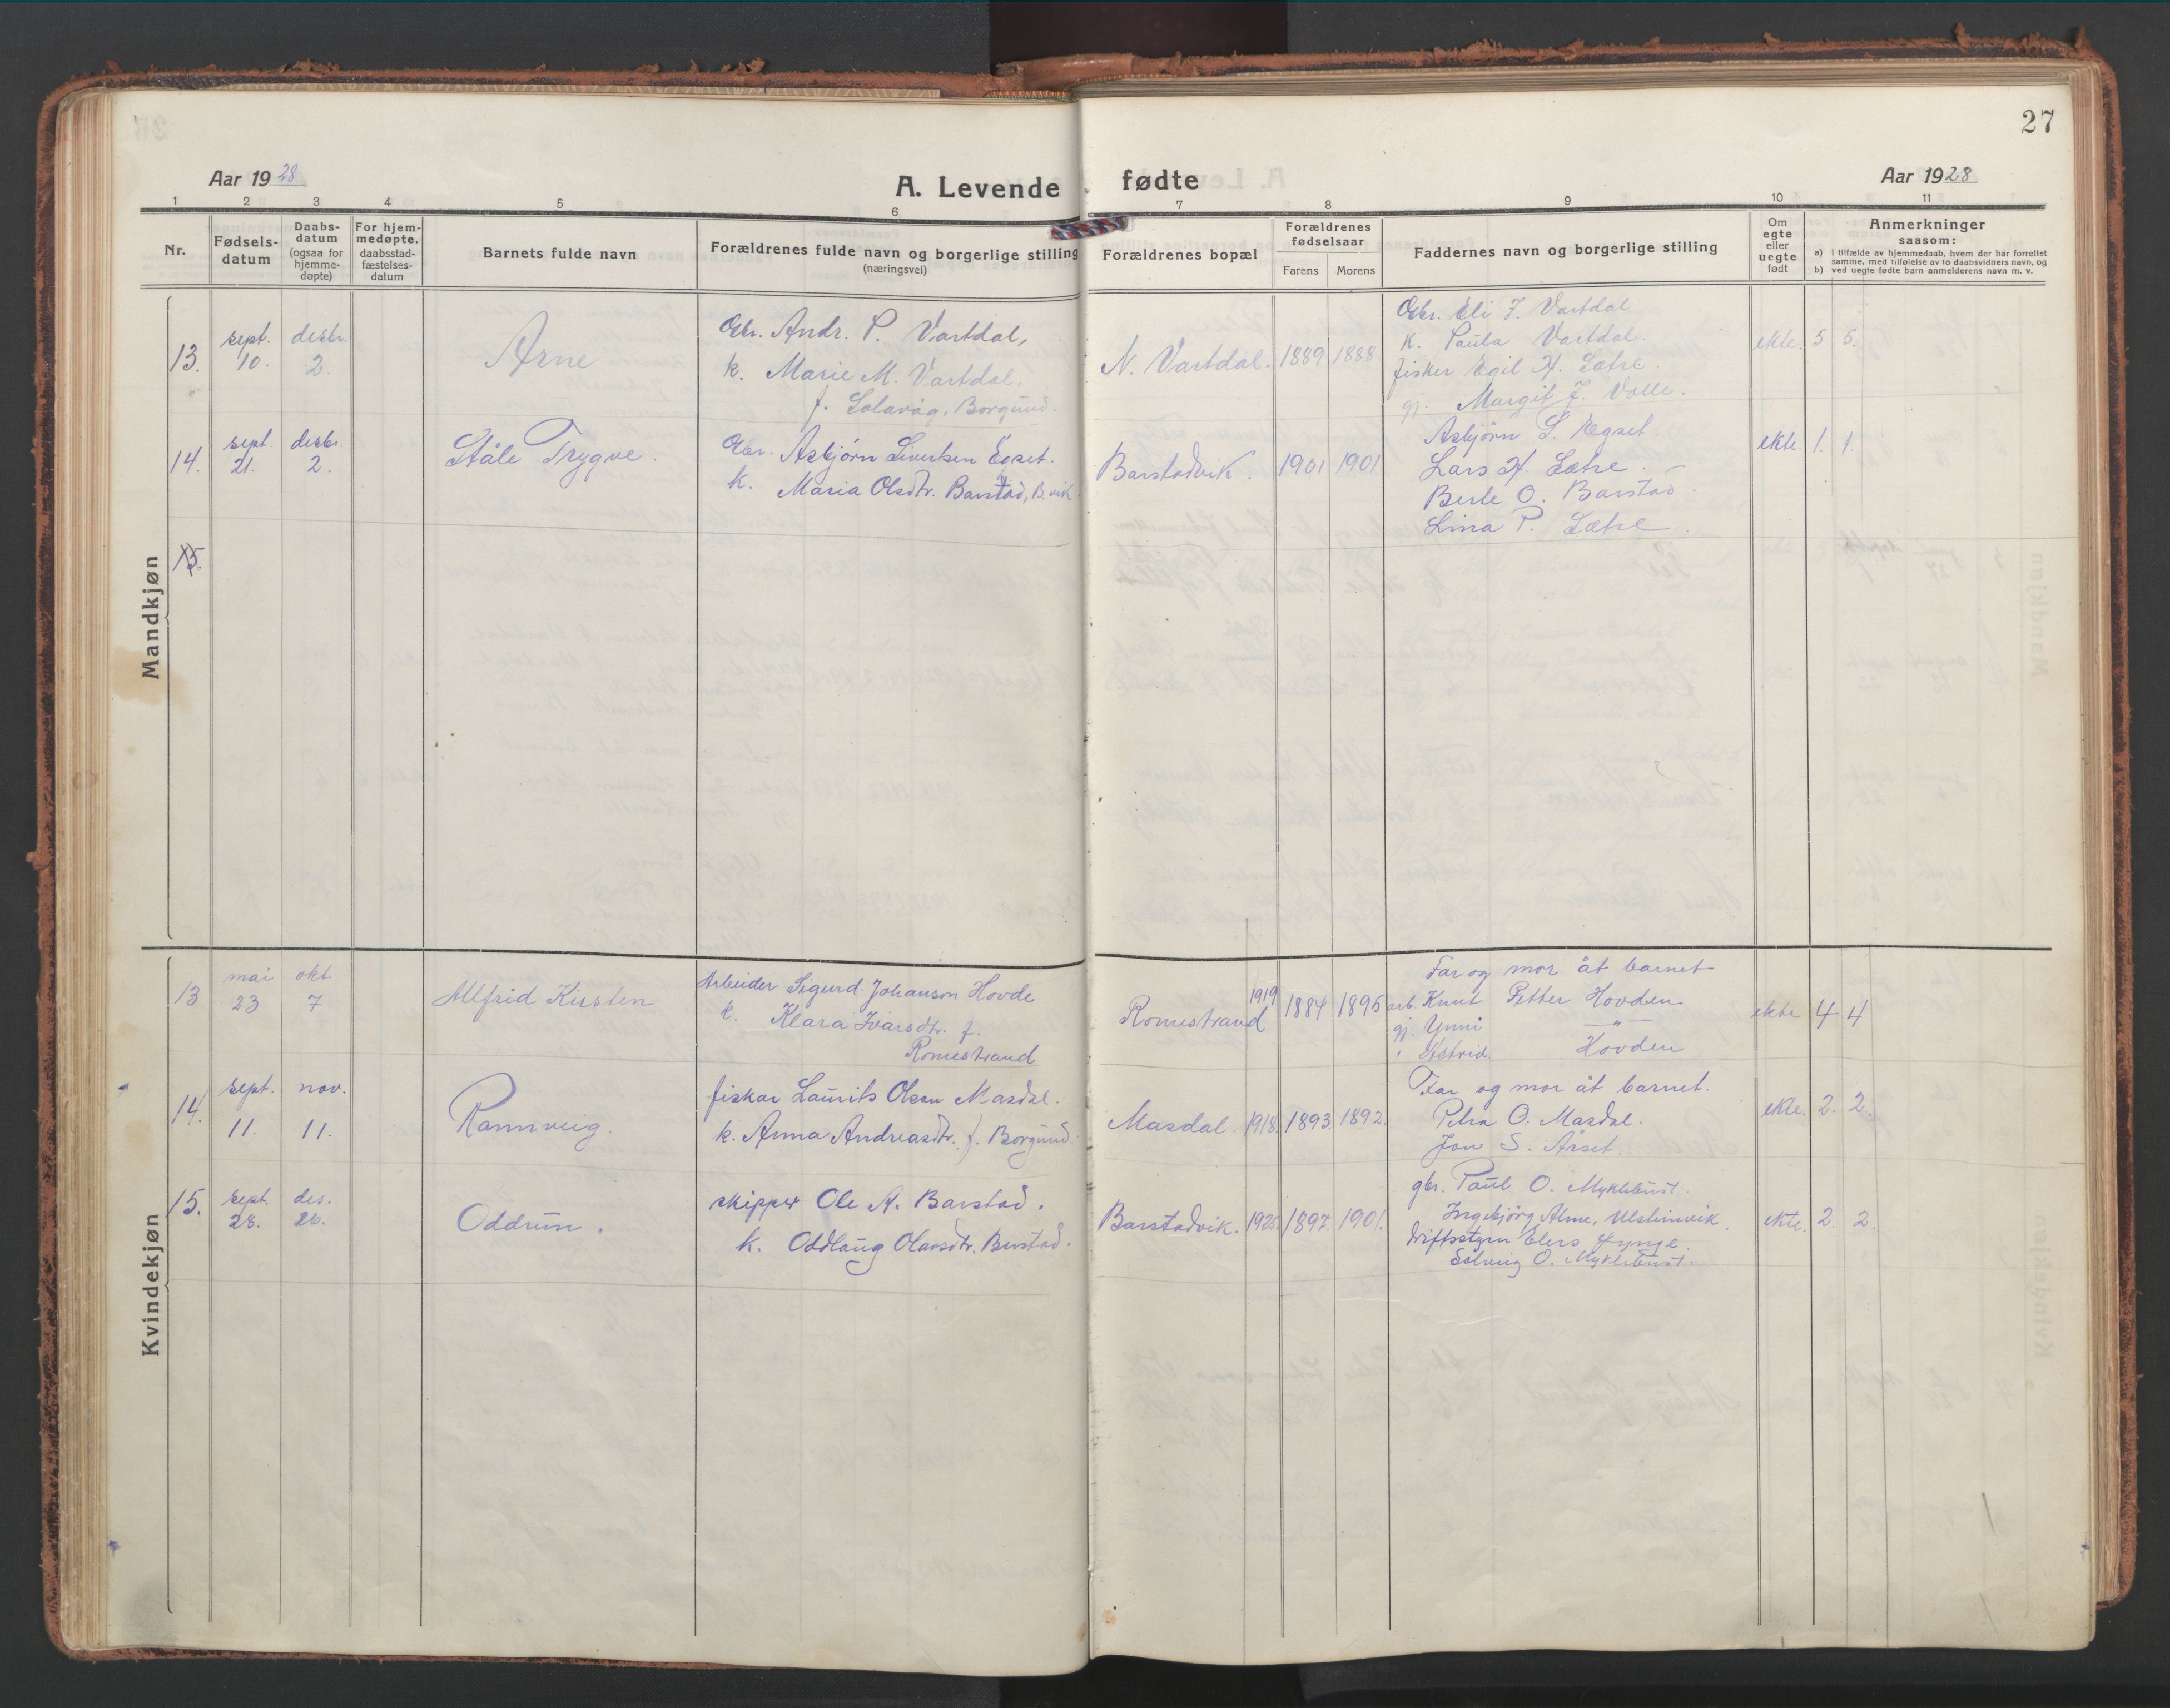 27
Aar 1928
A. Levende fødte
Aar 1928
1 2 3 4 5 6 7 8 9 10 11
Nr.
Fødsels-
datum
Daabs-
datum
(ogsaa for
hjemme-
døpte)
For hjem-
medøpte,
daabsstad-
fæstelses-
datum
Barnets fulde navn
Forældrenes fulde navn og borgerlige stilling
(næringsvei)
Forældrenes bopæl
Forældrenes
fødselsaar
Farens Morens
Faddernes navn og borgerlige stilling
Om
egte
eller
uegte
født
Anmerkninger
saasom:
a) i tilfælde av hjemmedaab, hvem der har forrettet
samme, med tilføielse av to daabsvidners navn, og
b) ved uegte fødte barn anmelderens navn m. v.
Mandkjøn
13.
sept.
10.
desbr.
2.
Arne
Gbr. Andr. P. Vartdal,
k. Marie M. Vartdal,
f. Solavåg, Borgund.
N. Vartdal.
1889 1888
Gbr. Eli J. Vartdal
k. Paula Vartdal.
fisker Egil H. Sætre.
gj. Margit J. Volle.
ekte. 5 5.
14.
sept.
21.
desbr.
2.
Ståle Trygve.
Gbr. Asbjørn Sivertsen Egset.
k. Maria Olsdtr. Barstad, B.vik
Barstadvik.
1901 1901
Asbjørn S. Egset.
Lars H. Sætre.
Berte O. Barstad
Lina P. Sætre.
ekte. 1. 1.
15.
Kvindekjøn
13
mai
23
okt
7
Alfrid Kirsten
Arbeider Sigurd Johanson Hovde
k. Klara Ivarsdtr. f.
Romestrand
Romestrand
1919
1884 1895
Far og mor åt barnet
arb. Knut Petter Hovden
gj. Ynni —"—
" Astrid Hovden
ekte 4 4
14.
sept.
11.
nov.
11.
Rannveig.
fiskar Laurits Olsen Masdal.
k. Anna Andreasdtr. f. Borgund
Masdal. 1918. 1893. 1892.
Far og mor åt barnet.
Petra O. Masdal.
Jon S. Årset.
ekte. 2. 2.
15.
sept.
28.
des.
26.
Oddrun.
skipper Ole A. Barstad.
k. Oddlaug Olavsdtr. Barstad.
Barstadvik. 1925. 1897. 1901.
gbr. Paul O. Myklebust.
Ingebjørg Alme, Ulsteinvik.
Driftsstyrar Elers
Solveig O. Myklebust.
ekte. 2. 2.